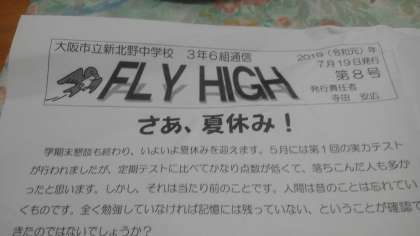 大阪市立新北野中学校 3年6組通信
2019(令和元)年
7月19日発行
第8号
発行責任者
寺田
FLY HIGH
さあ、夏休み!
学期末懇談も終わり、いよいよ夏休みを迎えます。5月には第1回の実力テスト
が行われましたが、定期テストに比べてかなり点数が低くて、落ちこんだ人も多か
ったと思います。しかし、それは当たり前のことです。人間は昔のことは忘れてい
くものです。全く勉強していなければ記憶には残っていない、ということが確認で
きたのではないでしょうか?